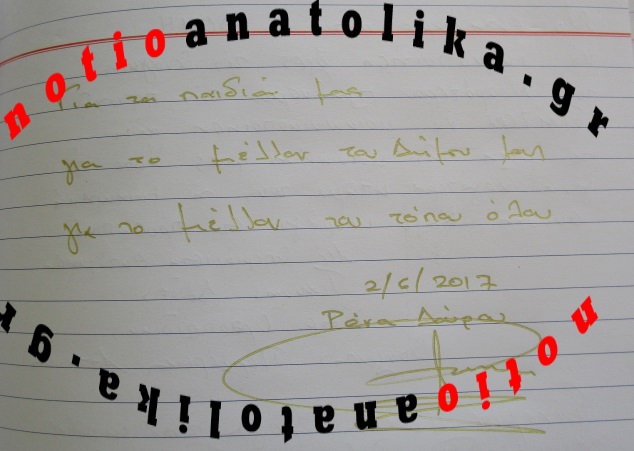 notioanatolika.gr
Για τα παιδιά μας
για το μέλλον του Δήμου μας
για το μέλλον του τόπου όλου
2/6/2017
Ρένα Δούρου
notioanatolika.gr